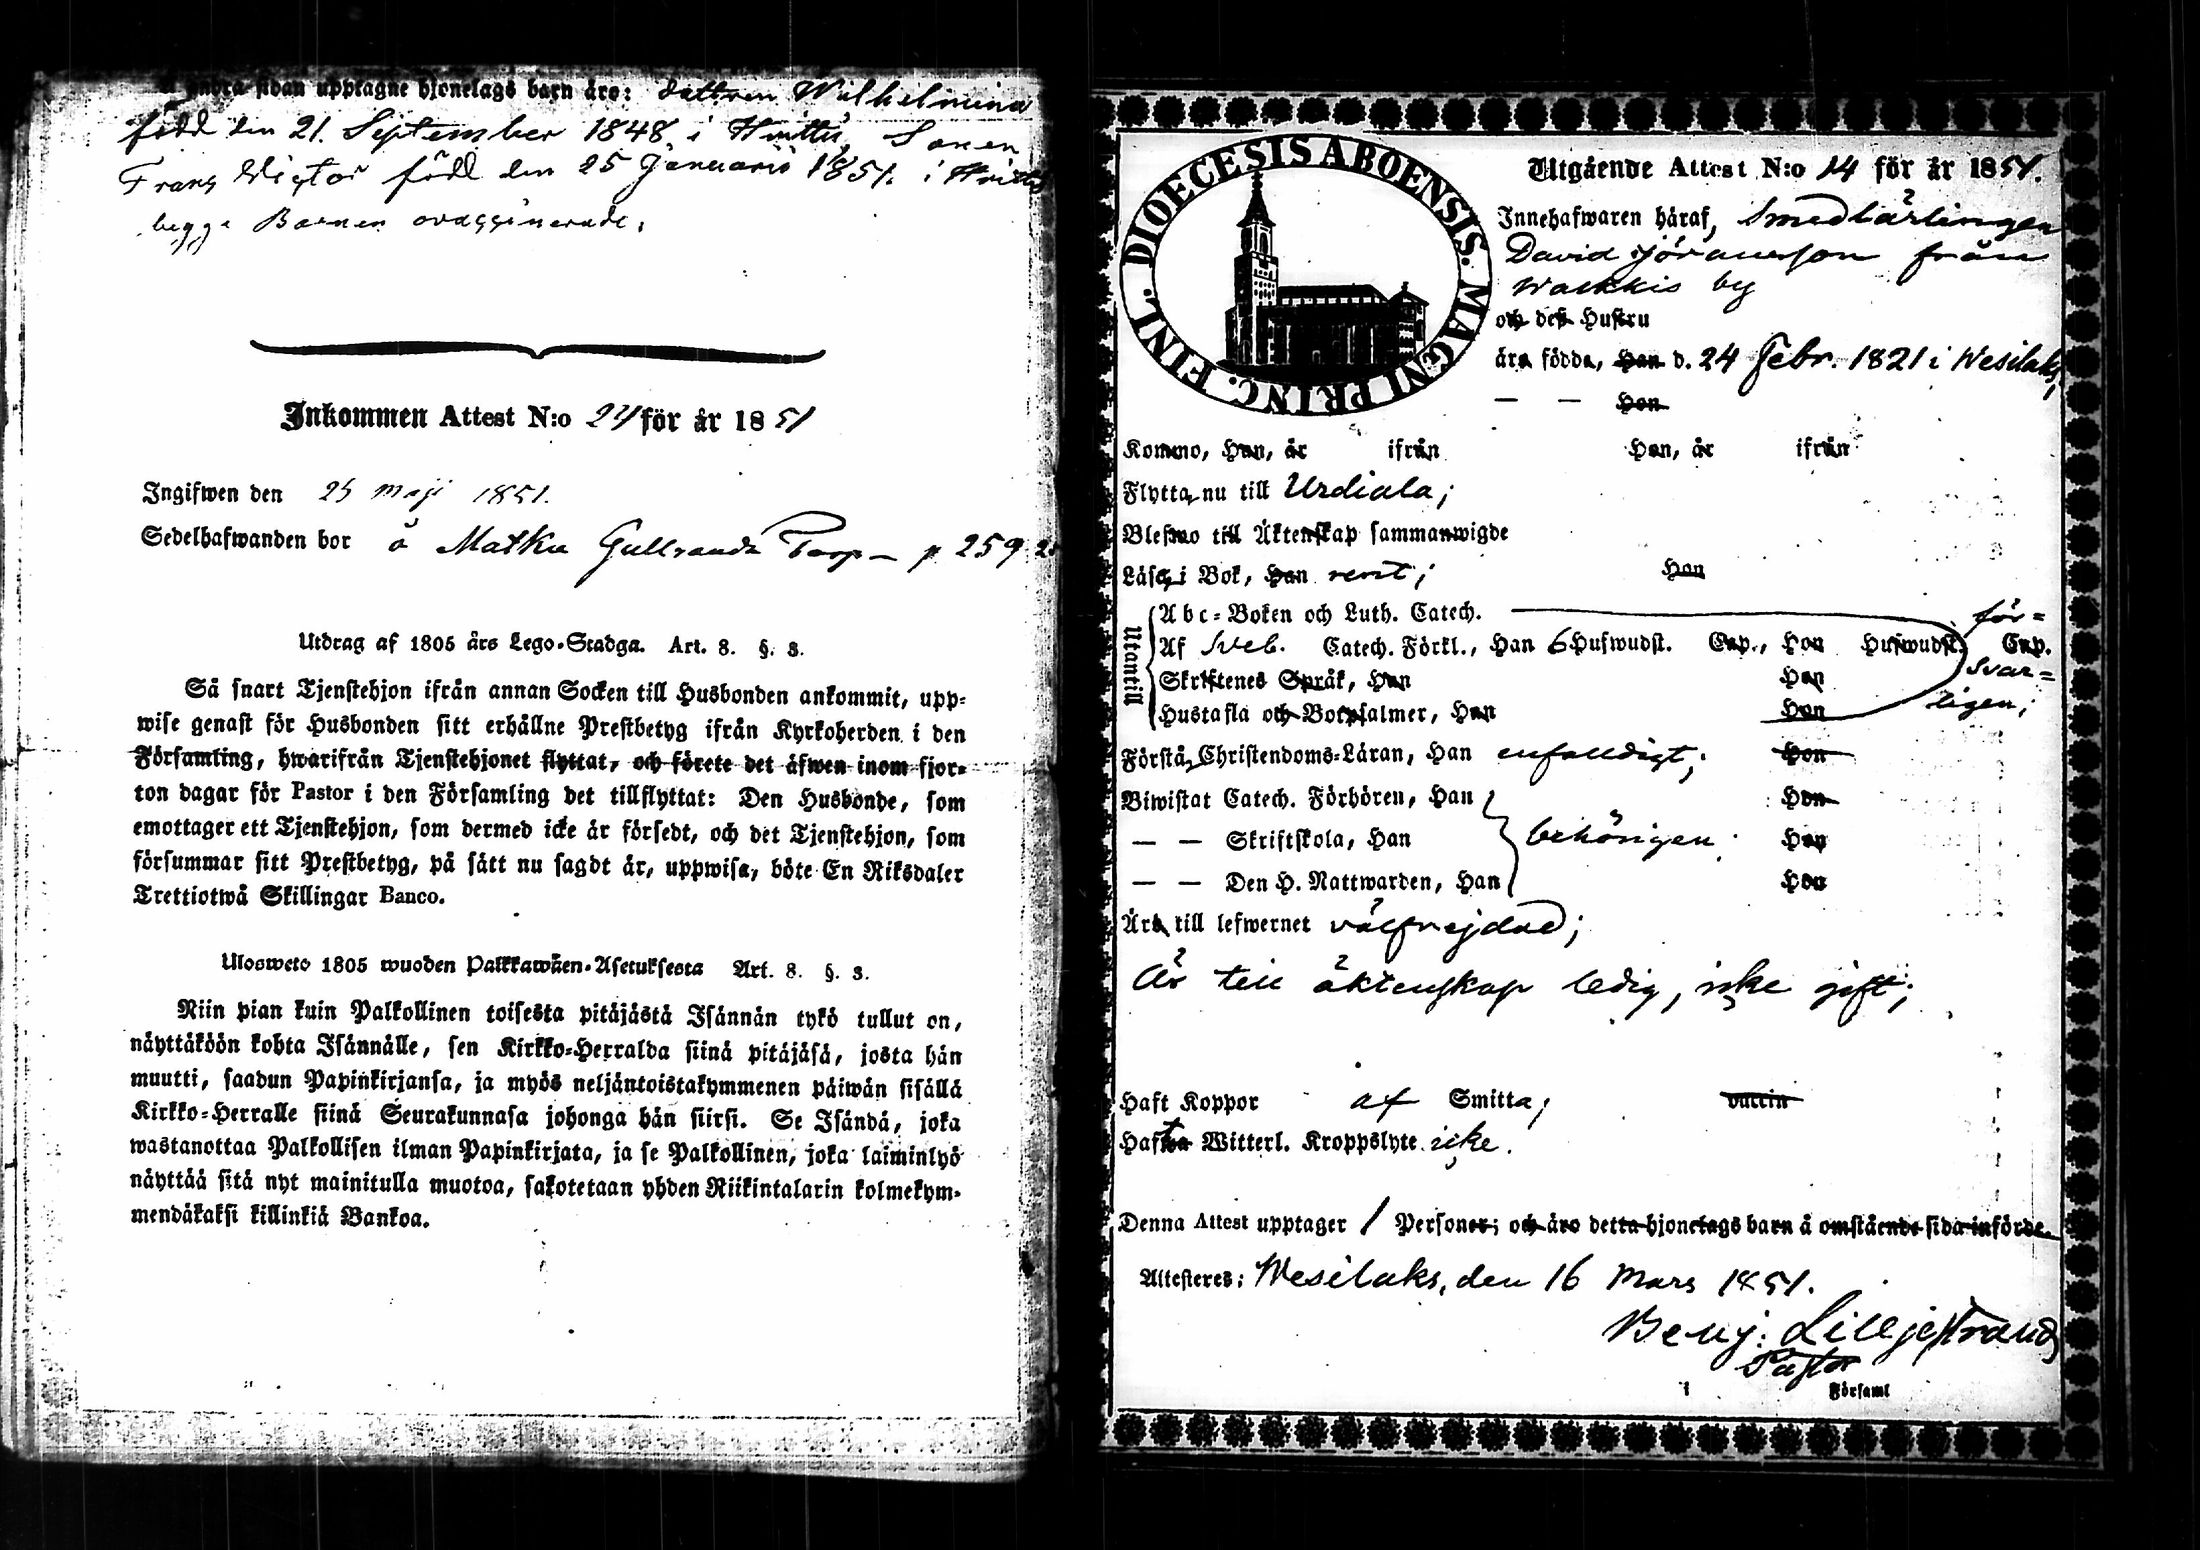 å andra sidan upptagne hjonelags barn äro: dottren Wilhelmina
född den 21. September 1848 i Huittis, Sonen
Frans Victor född den 25 Januarii 1851. i Huittis
begge Barnen ovaccinerade.
Inkommen Attest N:o 24 för år 1851
Ingifwen den 25 maji 1851.
Sedelhafwanden bor å Matku Gullrands Torp — p 259
Utdrag af 1805 års Lego-Stadga. Art. 8. §. 3.
Så snart Tjenstehjon ifrån annan Socken till Husbonden ankommit, upp-
wise genast för Husbonden sitt erhållne Prestbetyg ifrån Kyrkoherden i den
Församling, hwarifrån Tjenstehjonet flyttat, och förete det äfwen inom fjor-
ton dagar för Pastor i den Församling det tillflyttat: Den Husbonde, som
emottager ett Tjenstehjon, som dermed icke är försedt, och det Tjenstehjon, som
försummar sitt Prestbetyg, på sätt nu sagdt är, uppwisa, böte En Riksdaler
Trettiotwå Skillingar Banco.
Ulosweto 1805 wuoden Palkkawäen-Asetuksesta Art. 8. §. 3.
Niin pian kuin Palkollinen toisesta pitäjästä Isännän tykö tullut on,
näyttäköön kohta Isännälle, sen Kirkko-Herralda siinä pitäjäsä, josta hän
muutti, saadun Papinkirjansa, ja myös neljäntoistakymmenen päiwän sisällä
Kirkko-Herralle siinä Seurakunnasa johonga hän siirsi. Se Isändä, joka
wastanottaa Palkollisen ilman Papinkirjata, ja se Palkollinen, joka laiminlyö
näyttää sitä nyt mainitulla muotoa, sakotetaan yhden Riikintalarin kolmekym-
mendäkaksi killinkiä Bankoa.
DIOECESIS ABOENSIS. MAGNI PRINC. FINL.
Utgående Attest N:o 14 för år 1851.
Innehafwaren häraf, Smedlärlingen
David Jöransson från
Waekkis by
och deß Hustru
äro födda, Han d. 24 Febr. 1821 i Wesilaks,
— — Hon
Kommo, Han, år ifrån Hon, år ifrån
Flytta nu till Urdiala;
Blefwo till Äktenskap sammanwigde
Läsa i Bok, Han rent; Hon
Utantill
Abc-Boken och Luth. Catech. för-
Af Sveb. Catech. Förkl., Han 6 Hufwudst. Cap., Hon Hufwudst. Cap.
svar-
Skriftenes Språk, Han Hon
ligen;
Hustafla och Botpsalmer, Han Hon
Förstå Christendoms-Läran, Han enfalldigt; Hon
Biwistat Catech. Förhören, Han Hon
— — Skriftskola, Han behörigen; Hon
— — Den H. Nattwarden, Han Hon
Äro till lefwernet välfrejdad;
Är till äktenskap ledig, icke gift;
Haft Koppor af Smitta; vaccin
Hafwa Witterl. Kroppslyte icke.
Denna Attest upptager 1 Personer; och äro detta hjonelags barn å omstående sida införde.
Attesteres: Wesilaks, den 16 Mars 1851.
Benj: Lilljestrand
Pastor
i Församl